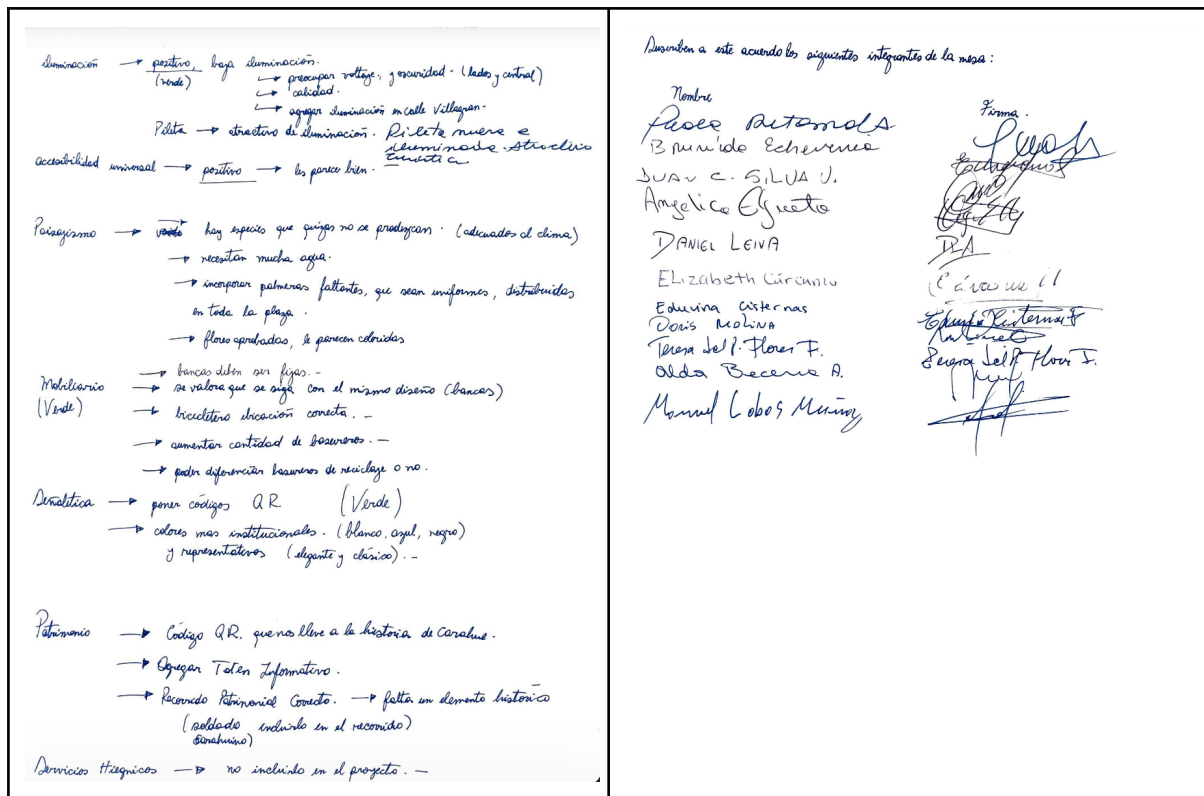 iluminación → positivo, baja iluminación.
(verde) ↳ preocupar voltaje, y oscuridad. (lados y central)
↳ calidad.
↳ agregar iluminación en calle Villagran.
Pileta → atractivo de iluminación. Pileta nueva e
iluminada. Atractivo
turística
accesibilidad universal → positivo → les parece bien.
Paisajismo → hay especies que quizas no se produzcan. (adecuados al clima)
→ necesitan mucha agua.
→ incorporar palmeras faltantes, que sean uniformes, distribuidas
en toda la plaza.
→ flores aprobadas, le parecen coloridas
→ bancas deben ser fijas. -
Mobiliario → se valora que se siga con el mismo diseño (bancas)
(Verde) → bicicletero ubicación correcta. -
→ aumentar cantidad de basureros. -
→ poder diferenciar basureros de reciclaje o no.
Señalitica → poner códigos QR. (Verde)
→ colores mas institucionales. (blanco, azul, negro)
y representativos (elegante y clásico). -
Patrimonio → Código QR. que nos lleve a la historia de Carahue.
→ Agregar Toten Informativo.
→ Recorrido Patrimonial Correcto. → falta un elemento histórico
(soldado incluirlo en el recorrido)
Carahuino)
Servicios Hignicos → no incluirlo en el proyecto. -
Suscriben a este acuerdo los siguientes integrantes de la mesa:
Nombre Firma.
Paola Retamal S.
Brunilda Echeverria
JUAN C. SILVA V.
Angelica Elgueta
DANIEL LEIVA
ELizabeth Cárcamo
Eduvina Cisternas
Doris MOLINA
Teresa del P. Flores F. Teresa del P. Flores F.
Alda Becerra A.
Manuel Lobos Muñoz